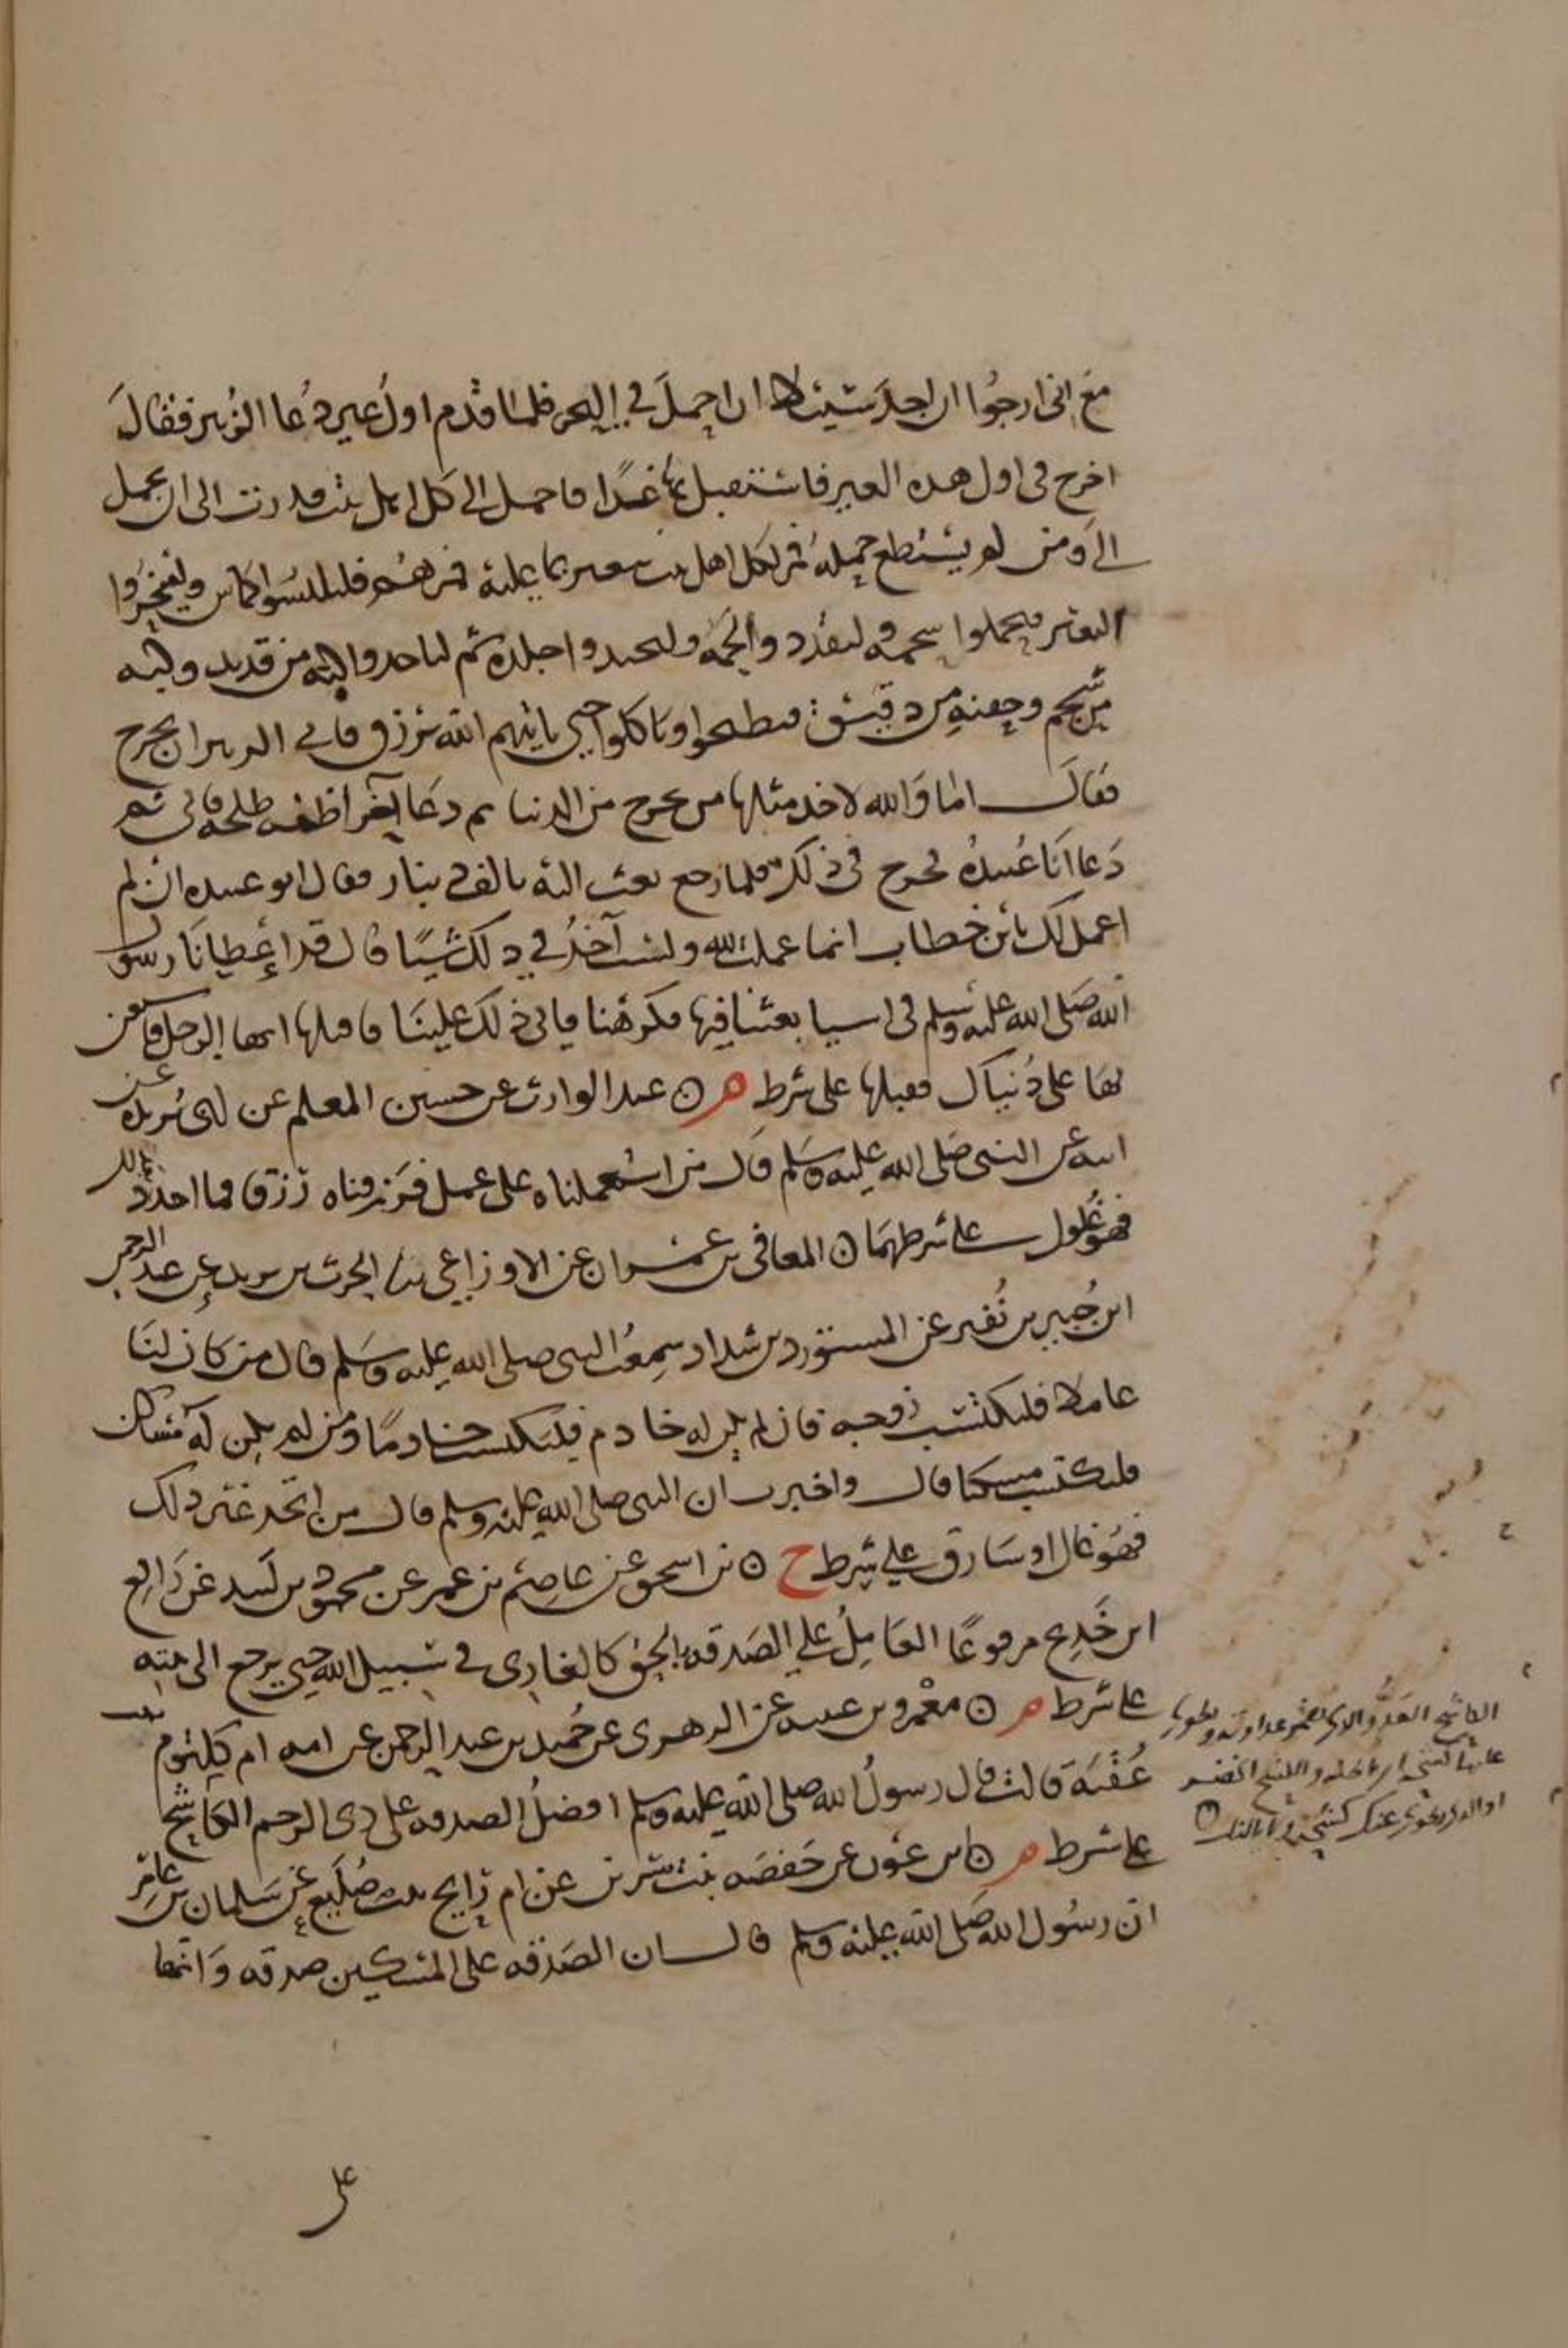 مع انى ارجوا ان اجد سبيلا ان احمل في البحر فلما قدم اول عير دعا الزبير فقال
اخرج فى اول هذه العير فاستقبل بها نجدا فاحمل الى كل اهل بيت قدرت الى ان تحمل
الى ومن لم يستطع حمله فمر لكل اهل بيت ببعير بما عليه فمرهم فليلبسوا كياس ولينحروا
البعير فيحملوا شحمه وليقددوا لحمه وليحتذوا جلده ثم لياخذوا كبه من قديد وكبه
من شحم وجفنه من دقيق فيطبخوا وياكلوا حتى ياتيهم الله برزق فابى الزبير ان يخرج
فقال اما والله لا تجد مثلها حتى تخرج من الدنيا ثم دعا اخر اظنه طلحه فابى ثم
دعا ابا عبيده فخرج فى ذلك فلما رجع بعث اليه بالف دينار فقال ابو عبيده انى لم
اعمل لك يا بن خطاب انما عملت لله ولست آخذ في ذلك شيئا قال قد اعطانا رسول
الله صلى الله عليه وسلم فى اشيا بعثنا فيها فكرهنا فابى ذلك علينا فاقبلها ايها الرجل فاستعن
بها على دنياك فقبلها على شرط م ۞ عبد الوارث عن حسين المعلم عن ابن بريده عن
ابيه عن النبى صلى الله عليه وسلم قال من استعملناه على عمل فرزقناه رزقا فما اخذ بعد ذلك
فهو غلول على شرطهما ۞ المعافى بن عمران عن الاوزاعى ثنا الحرث بن يزيد عن عبد الرحمن
ابن جبير بن نفير عن المستورد بن شداد سمعت النبى صلى الله عليه وسلم قال من كان لنا
عاملا فليكتسب زوجه فان لم يكن له خادم فليكتسب خادما ومن لم يكن له مسكن
فليكتسب مسكنا قال واخبرت ان النبى صلى الله عليه وسلم قال من اتخذ غير ذلك
فهو غال او سارق على شرط خ ۞ بن اسحق عن عاصم بن عمر عن محمود بن لبيد عن رافع
ابن خديج مرفوعا العامل على الصدقه بالحق كالغازى فى سبيل الله حتى يرجع الى بيته
على شرط م ۞ معمر وبن عيينه عن الزهرى عن حميد بن عبد الرحمن عن امه ام كلثوم بنت
عقبة قالت قال رسول الله صلى الله عليه وسلم افضل الصدقه على ذى الرحم الكاشح
على شرط م ۞ بن عون عن حفصه بنت سيرين عن ام رايح بنت صليع عن سلمان بن عامر
ان رسول الله صلى الله عليه وسلم قال ان الصدقه على المسكين صدقه وانها
على
الكاشح العدو الذى يضمر عداوته ويطوى
عليها كشحه